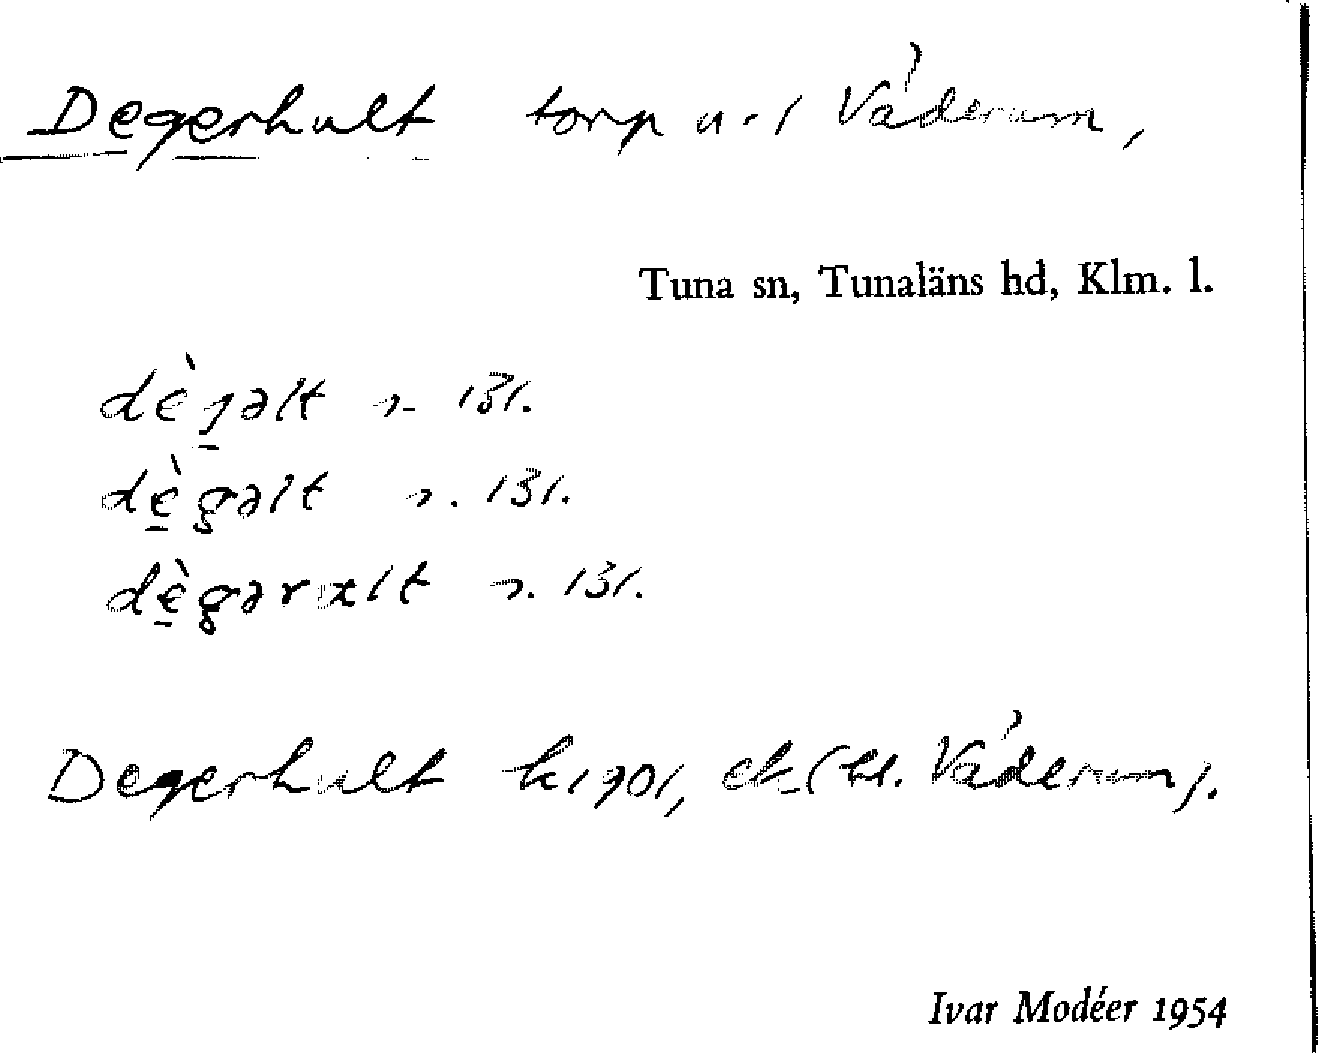 Degerhult torp u. Väderum,
Tuna sn, Tunaläns hd, Klm. l.
131.
dègəlt 131.
dègərult 131.
Degerhult k. 1901, ek. (bl. Väderum).
Ivar Modéer 1954